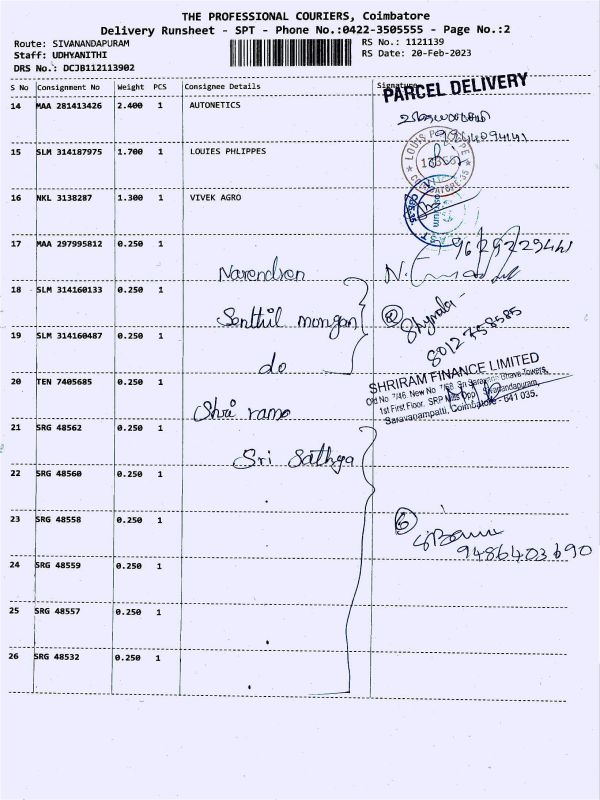 THE PROFESSIONAL COURIERS, Coimbatore
Delivery Runsheet - SPT - Phone No.:0422-3505555 - Page No.:2
Route: SIVANANDAPURAM
RS No.: 1121139
Staff: UDHYANITHI
RS Date: 20-Feb-2023
DRS No.: DCJB112113902
S No Consignment No Weight PCS Consignee Details Signature
PARCEL DELIVERY
14 MAA 281413426 2.400 1 AUTONETICS
15 SLM 314187975 1.700 1 LOUIES PHLIPPES
16 NKL 3138287 1.300 1 VIVEK AGRO
17 MAA 297995812 0.250 1
Narendren
18 SLM 314160133 0.250 1
Senthil mongan
Shymala
8012758585
19 SLM 314160487 0.250 1
do
SHRIRAM FINANCE LIMITED
Old No. 7/46, New No. 7/68, Sri Saravan Bhava Towers,
1st First Floor, SRP Mills Opp. Sivanandapuram,
Saravanampatti, Coimbatore - 641 035.
20 TEN 7405685 0.250 1
Shri ram
21 SRG 48562 0.250 1
Sri Sathya
22 SRG 48560 0.250 1
23 SRG 48558 0.250 1
6
9486403690
24 SRG 48559 0.250 1
25 SRG 48557 0.250 1
26 SRG 48532 0.250 1